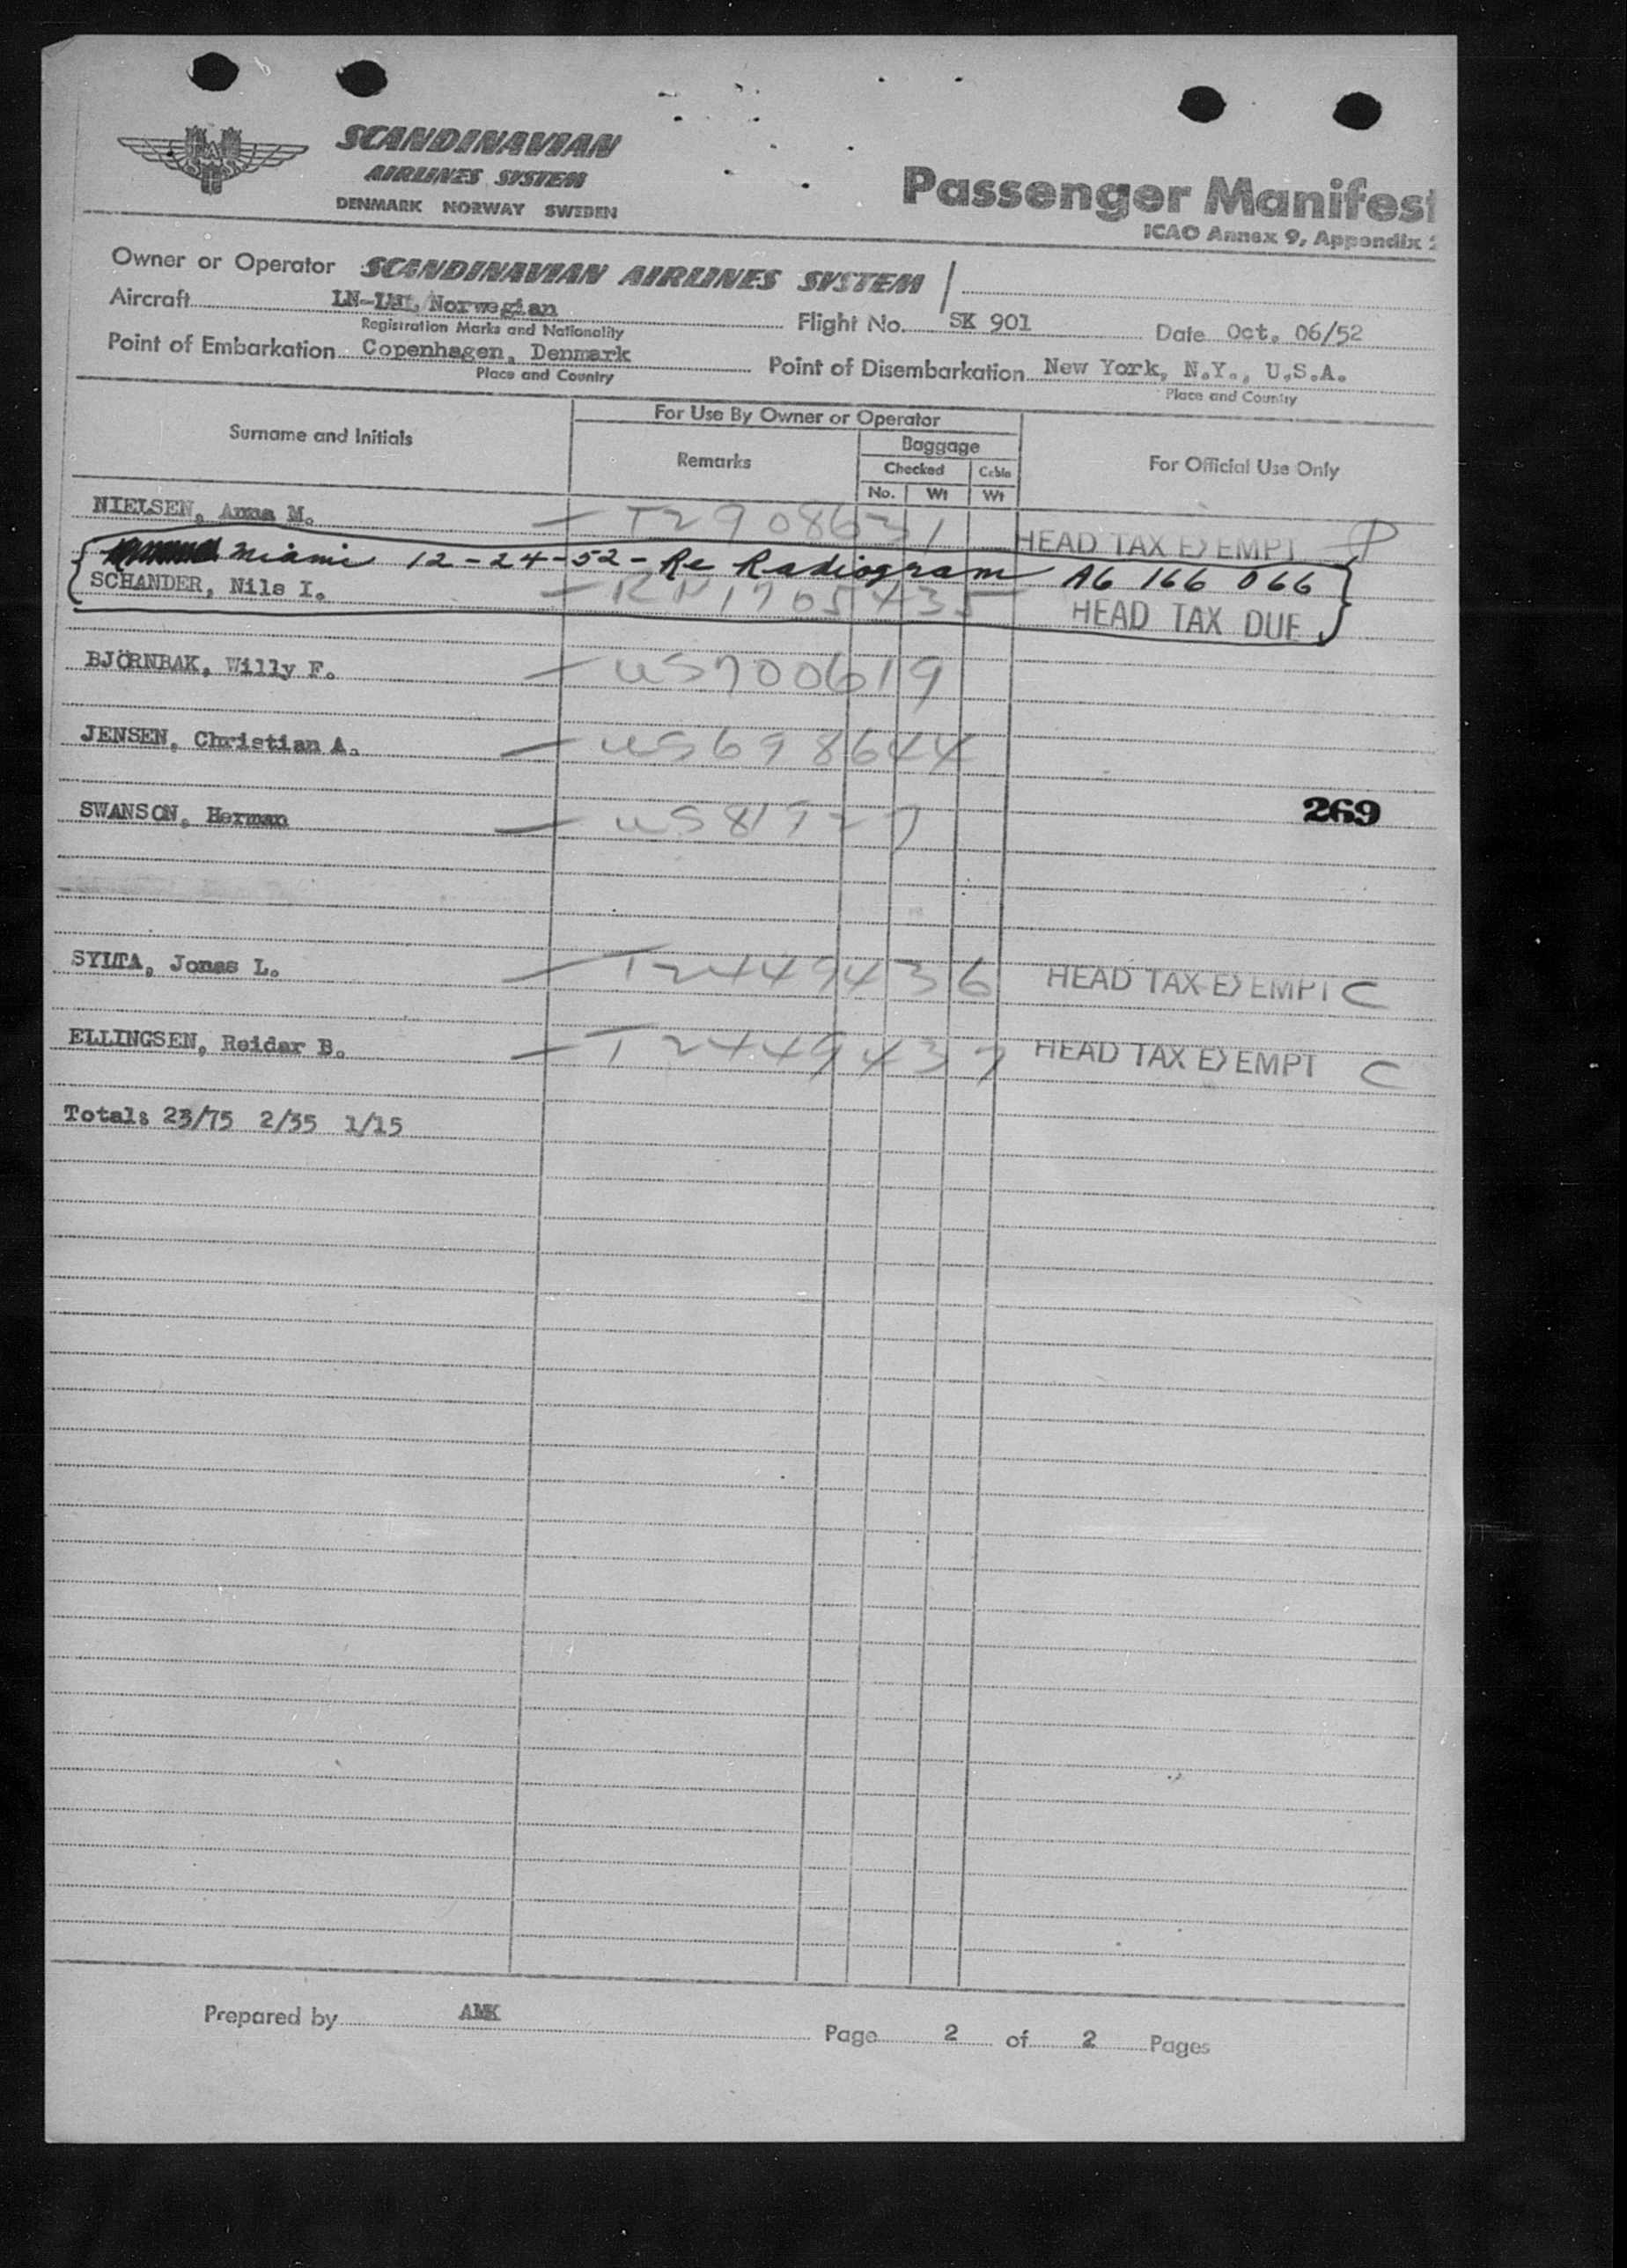 SCANDINAVIAN
AIRLINES SYSTEM
DENMARK NORWAY SWEDEN
Passenger Manifest
ICAO Annex 9, Appendix 2
Owner or Operator SCANDINAVIAN AIRLINES SYSTEM /
Aircraft Norwegian Flight No. SK 901 Date Oct. 06/52
Registration Marks and Nationality
Point of Embarkation Copenhagen, Denmark Point of Disembarkation New York, N.Y., U.S.A.
Place and Country Place and Country
Surname and Initials For Use By Owner or Operator For Official Use Only
Remarks Baggage
Checked Cabin
No. Wt Wt
NIELSEN, Anna M. — T2908631 HEAD TAX EXEMPT P
Miami 12-24-52- Re Radiogram A6 166 066
SCHANDER, Nils I. — HEAD TAX DUE
BJÖRNBAK, Willy F. — US700619
JENSEN, Christian A. — US698644
SWANSON, Herman — 269
SYLTA, Jonas L. — T2449436 HEAD TAX EXEMPT C
ELLINGSEN, Reidar B. — T2449437 HEAD TAX EXEMPT C
Total: 23/75 2/35 1/15
Prepared by AMK
Page 2 of 2 Pages